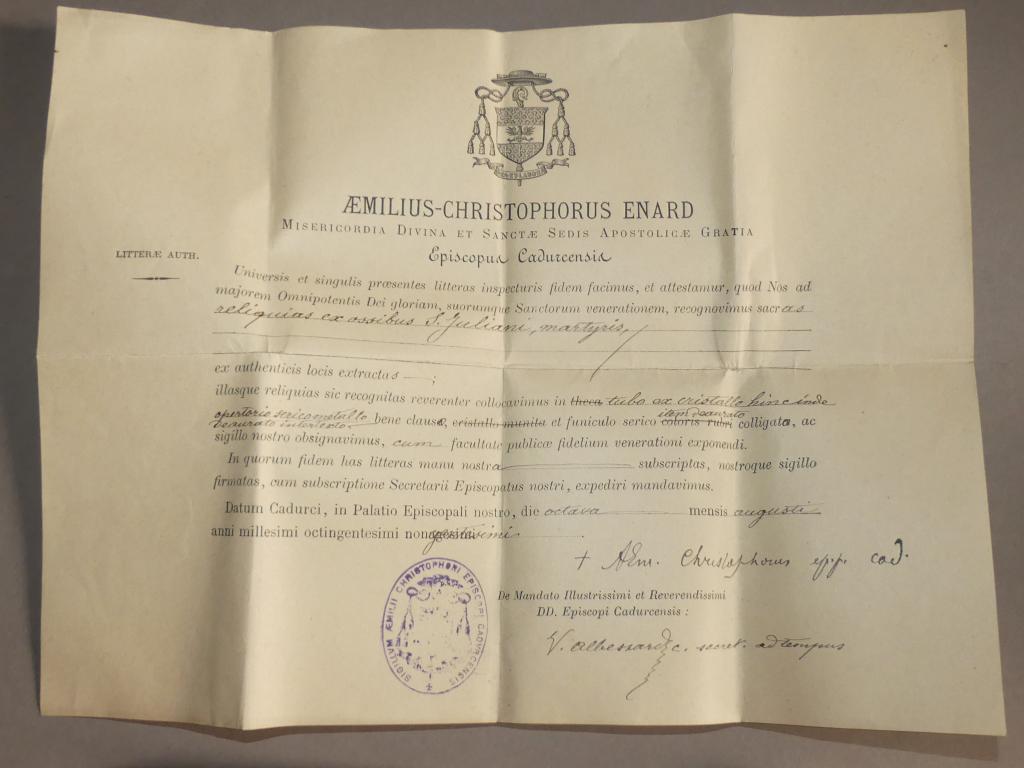 ÆMILIUS-CHRISTOPHORUS ENARD
MISERICORDIA DIVINA ET SANCTÆ SEDIS APOSTOLICÆ GRATIA
Episcopus Cadurcensis
LITTERÆ AUTH.
Universis et singulis præsentes litteras inspecturis fidem facimus, et attestamur, quod Nos ad
majorem Omnipotentis Dei gloriam, suorumque Sanctorum venerationem, recognovimus sacras
reliquias ex ossibus S. Juliani, martyris,
ex authenticis locis extractas ;
illasque reliquias sic recognitas reverenter collocavimus in theca tubo ex cristallo hinc inde
opertorio serico metallo item deaurato
deaurato intertexto bene clausa, cristallo munita et funiculo serico coloris rubri colligata, ac
sigillo nostro obsignavimus, cum facultate publicæ fidelium venerationi exponendi.
In quorum fidem has litteras manu nostra subscriptas, nostroque sigillo
firmatas, cum subscriptione Secretarii Episcopatus nostri, expediri mandavimus.
Datum Cadurci, in Palatio Episcopali nostro, die octava mensis augusti
anni millesimi octingentesimi nongentesimi
+ Aem. Christophorus epp. cad.
De Mandato Illustrissimi et Reverendissimi
DD. Episcopi Cadurcensis :
V. Albessard c. secret. ad tempus
SIGILLVM ÆMILII CHRISTOPHORI EPISCOPI CADVRCENSIS